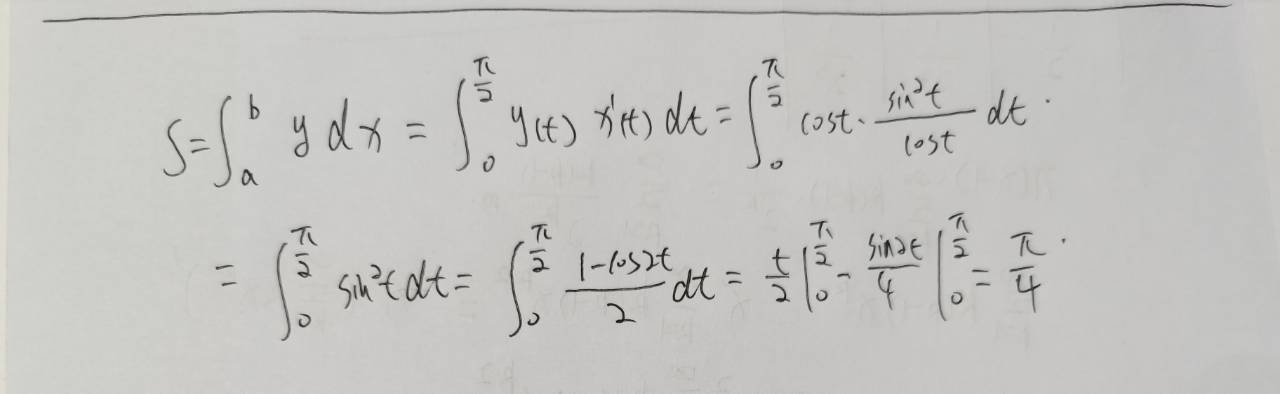 S=∫_a^b y dx = ∫_0^{π/2} y(t) x'(t) dt = ∫_0^{π/2} cost· \frac{sin²t}{cost} dt.
= ∫_0^{π/2} sin²t dt = ∫_0^{π/2} \frac{1-cos2t}{2} dt = \frac{t}{2}|_0^{π/2} - \frac{sin2t}{4}|_0^{π/2} = \frac{π}{4}.